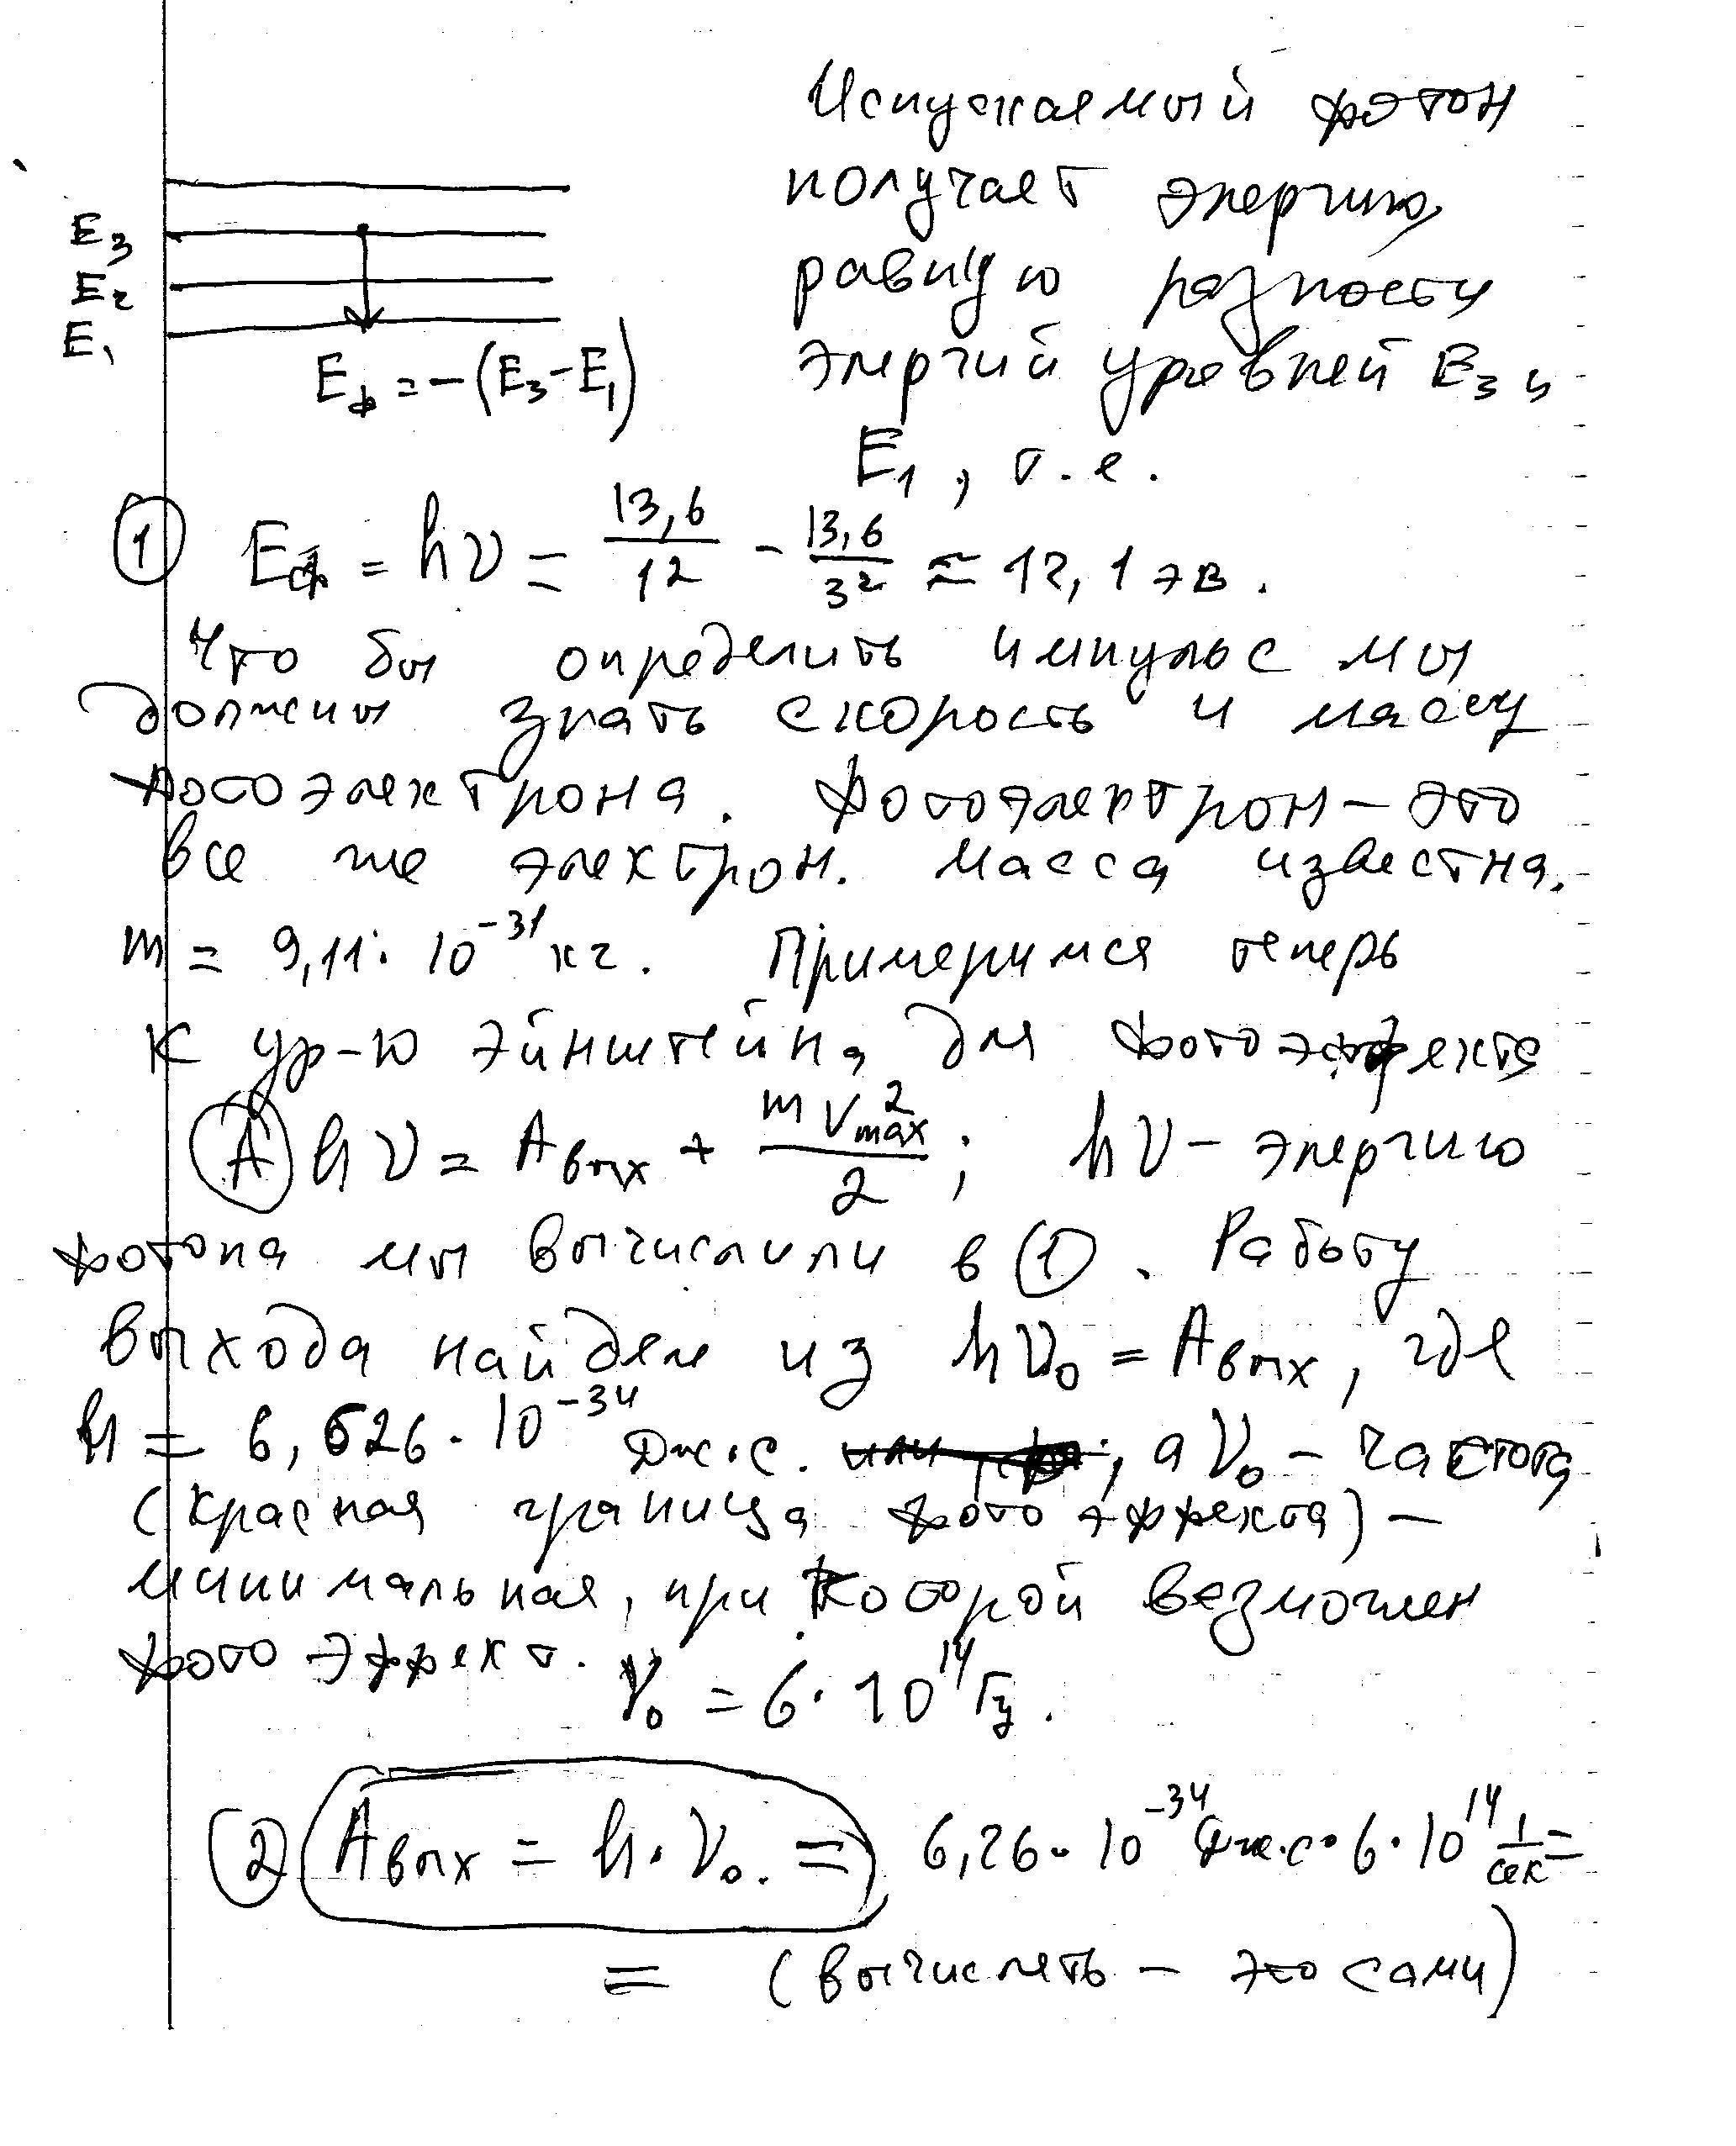 Испускаемый фотон
получает энергию,
равную разности
энергий уровней E₃ и
E₁, т.е.
E₃
E₂
E₁
Eф = -(E₃-E₁)
① Eф = hν = 13,6/1² - 13,6/3² ≈ 12,1 эв.
Что бы определить импульс мы
должны знать скорость и массу
фотоэлектрона. Фотоэлектрон - это
все же электрон. Масса известна.
m = 9,11·10⁻³¹ кг. Примеримся теперь
к ур-ю Эйнштейна для фотоэффекта
Ⓐ hν = Aвых + mV²max/2 ; hν - энергию
фотона мы вычислили в ①. Работу
выхода найдем из hν₀ = Aвых, где
h = 6,626·10⁻³⁴ Дж·с. , а ν₀ - частота
(красная граница фотоэффекта) -
минимальная, при которой возможен
фотоэффект. ν₀ = 6·10¹⁴ Гц.
② Aвых = h·ν₀. = 6,26·10⁻³⁴ Дж·с·6·10¹⁴ 1/сек =
= (вычислять - это сами)